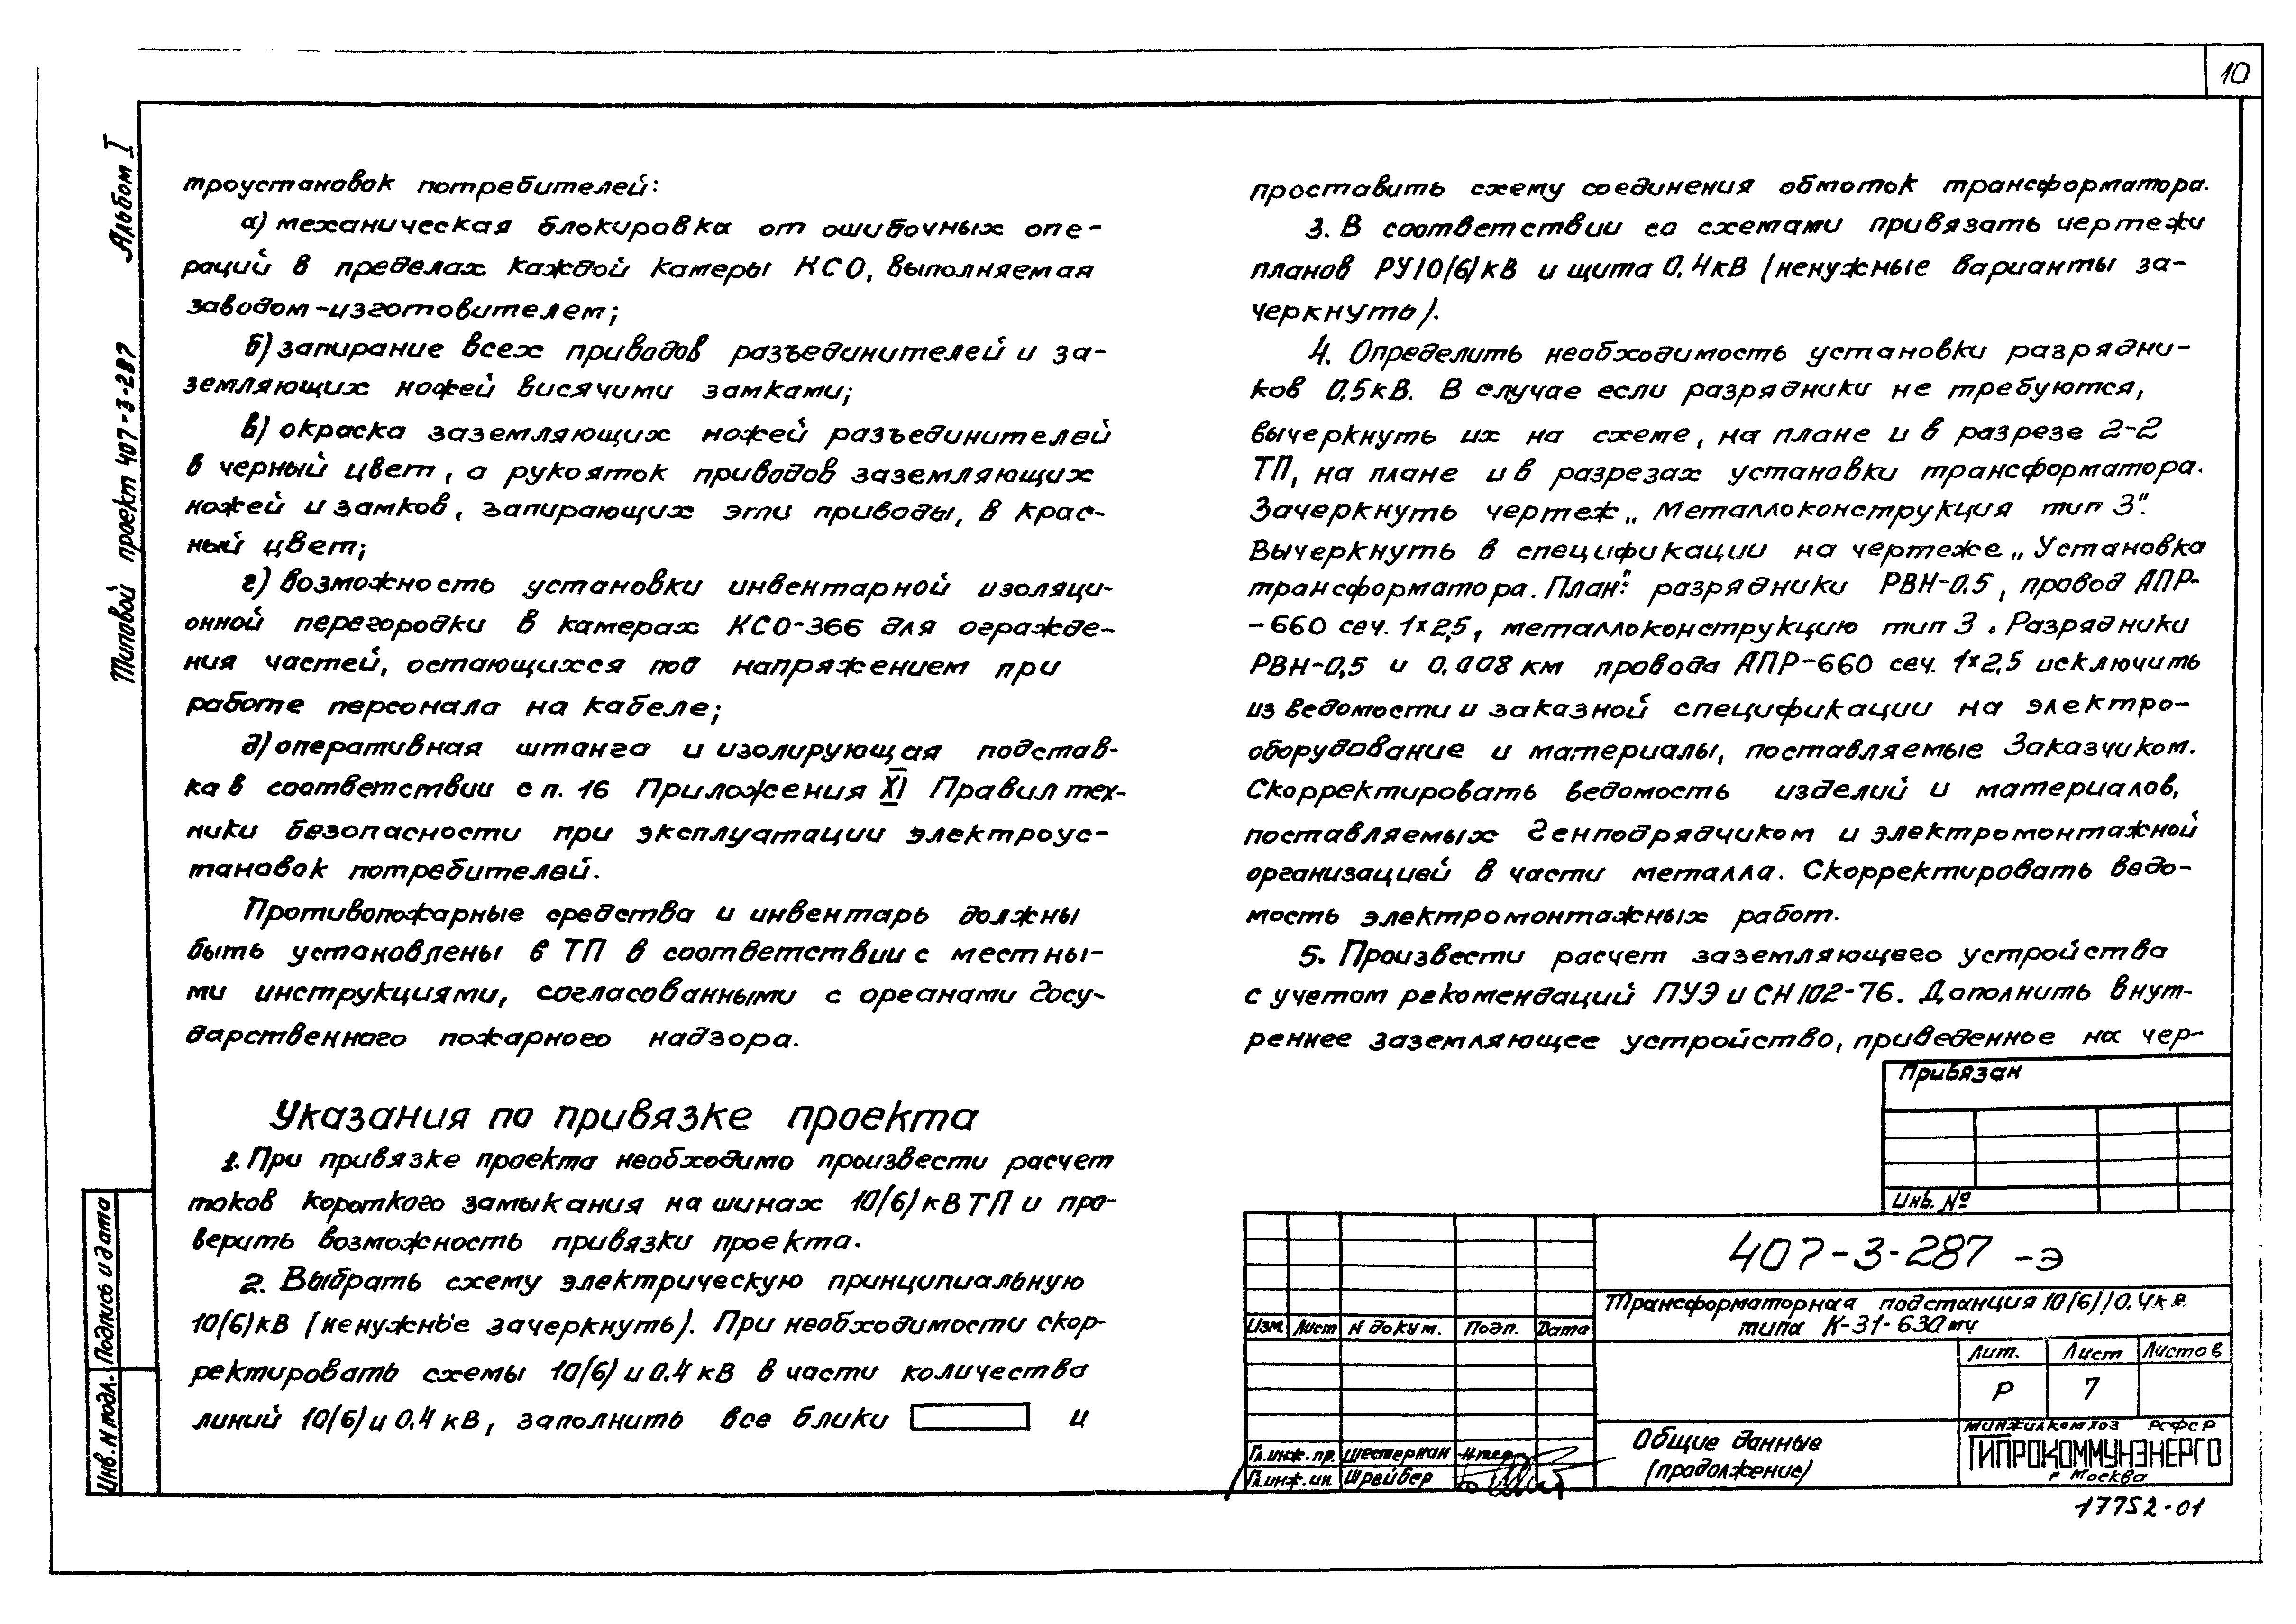 10
Альбом I
Типовой проект 407-3-287
троустановок потребителей:
а) механическая блокировка от ошибочных опе-
раций в пределах каждой камеры КСО, выполняемая
заводом-изготовителем;
б) запирание всех приводов разъединителей и за-
земляющих ножей висячими замками;
в) окраска заземляющих ножей разъединителей
в черный цвет, а рукояток приводов заземляющих
ножей и замков, запирающих эти приводы, в крас-
ный цвет;
г) возможность установки инвентарной изоляци-
онной перегородки в камерах КСО-366 для огражде-
ния частей, остающихся под напряжением при
работе персонала на кабеле;
д) оперативная штанга и изолирующая подстав-
ка в соответствии с п. 16 Приложения XI Правил тех-
ники безопасности при эксплуатации электроус-
тановок потребителей.
Противопожарные средства и инвентарь должны
быть установлены в ТП в соответствии с местны-
ми инструкциями, согласованными с органами Госу-
дарственного пожарного надзора.
Указания по привязке проекта
1. При привязке проекта необходимо произвести расчет
токов короткого замыкания на шинах 10(6)кВ ТП и про-
верить возможность привязки проекта.
2. Выбрать схему электрическую принципиальную
10(6)кВ (ненужные зачеркнуть). При необходимости скор-
ректировать схемы 10(6) и 0.4 кВ в части количества
линий 10(6) и 0.4 кВ, заполнить все блики и
проставить схему соединения обмоток трансформатора.
3. В соответствии со схемами привязать чертежи
планов РУ10(6)кВ и щита 0.4кВ (ненужные варианты за-
черкнуть).
4. Определить необходимость установки разрядни-
ков 0,5кВ. В случае если разрядники не требуются,
вычеркнуть их на схеме, на плане и в разрезе 2-2
ТП, на плане и в разрезах установки трансформатора.
Зачеркнуть чертеж „Металлоконструкция тип 3".
Вычеркнуть в спецификации на чертеже „Установка
трансформатора. План": разрядники РВН-0.5, провод АПР-
-660 сеч. 1×2,5, металлоконструкцию тип 3. Разрядники
РВН-0,5 и 0.008 км провода АПР-660 сеч. 1×2,5 исключить
из ведомости и заказной спецификации на электро-
оборудование и материалы, поставляемые Заказчиком.
Скорректировать ведомость изделий и материалов,
поставляемых Генподрядчиком и электромонтажной
организацией в части металла. Скорректировать ведо-
мость электромонтажных работ.
5. Произвести расчет заземляющего устройства
с учетом рекомендаций ПУЭ и СН 102-76. Дополнить внут-
реннее заземляющее устройство, приведенное на чер-
Привязан
Инв. №
407-3-287 -Э
Трансформаторная подстанция 10(6)/0.4кв
типа К-31-630му
Изм. Лист N докум. Подп. Дата
Лит. Лист Листов
Р 7
Гл.инж.пр. Шестерман
Гл.инж.ин. Шрейбер
Общие данные
(продолжение)
Минжилкомхоз РСФСР
ГИПРОКОММУНЭНЕРГО
г Москва
17752-01
Подпись и дата
Инв. N подл.